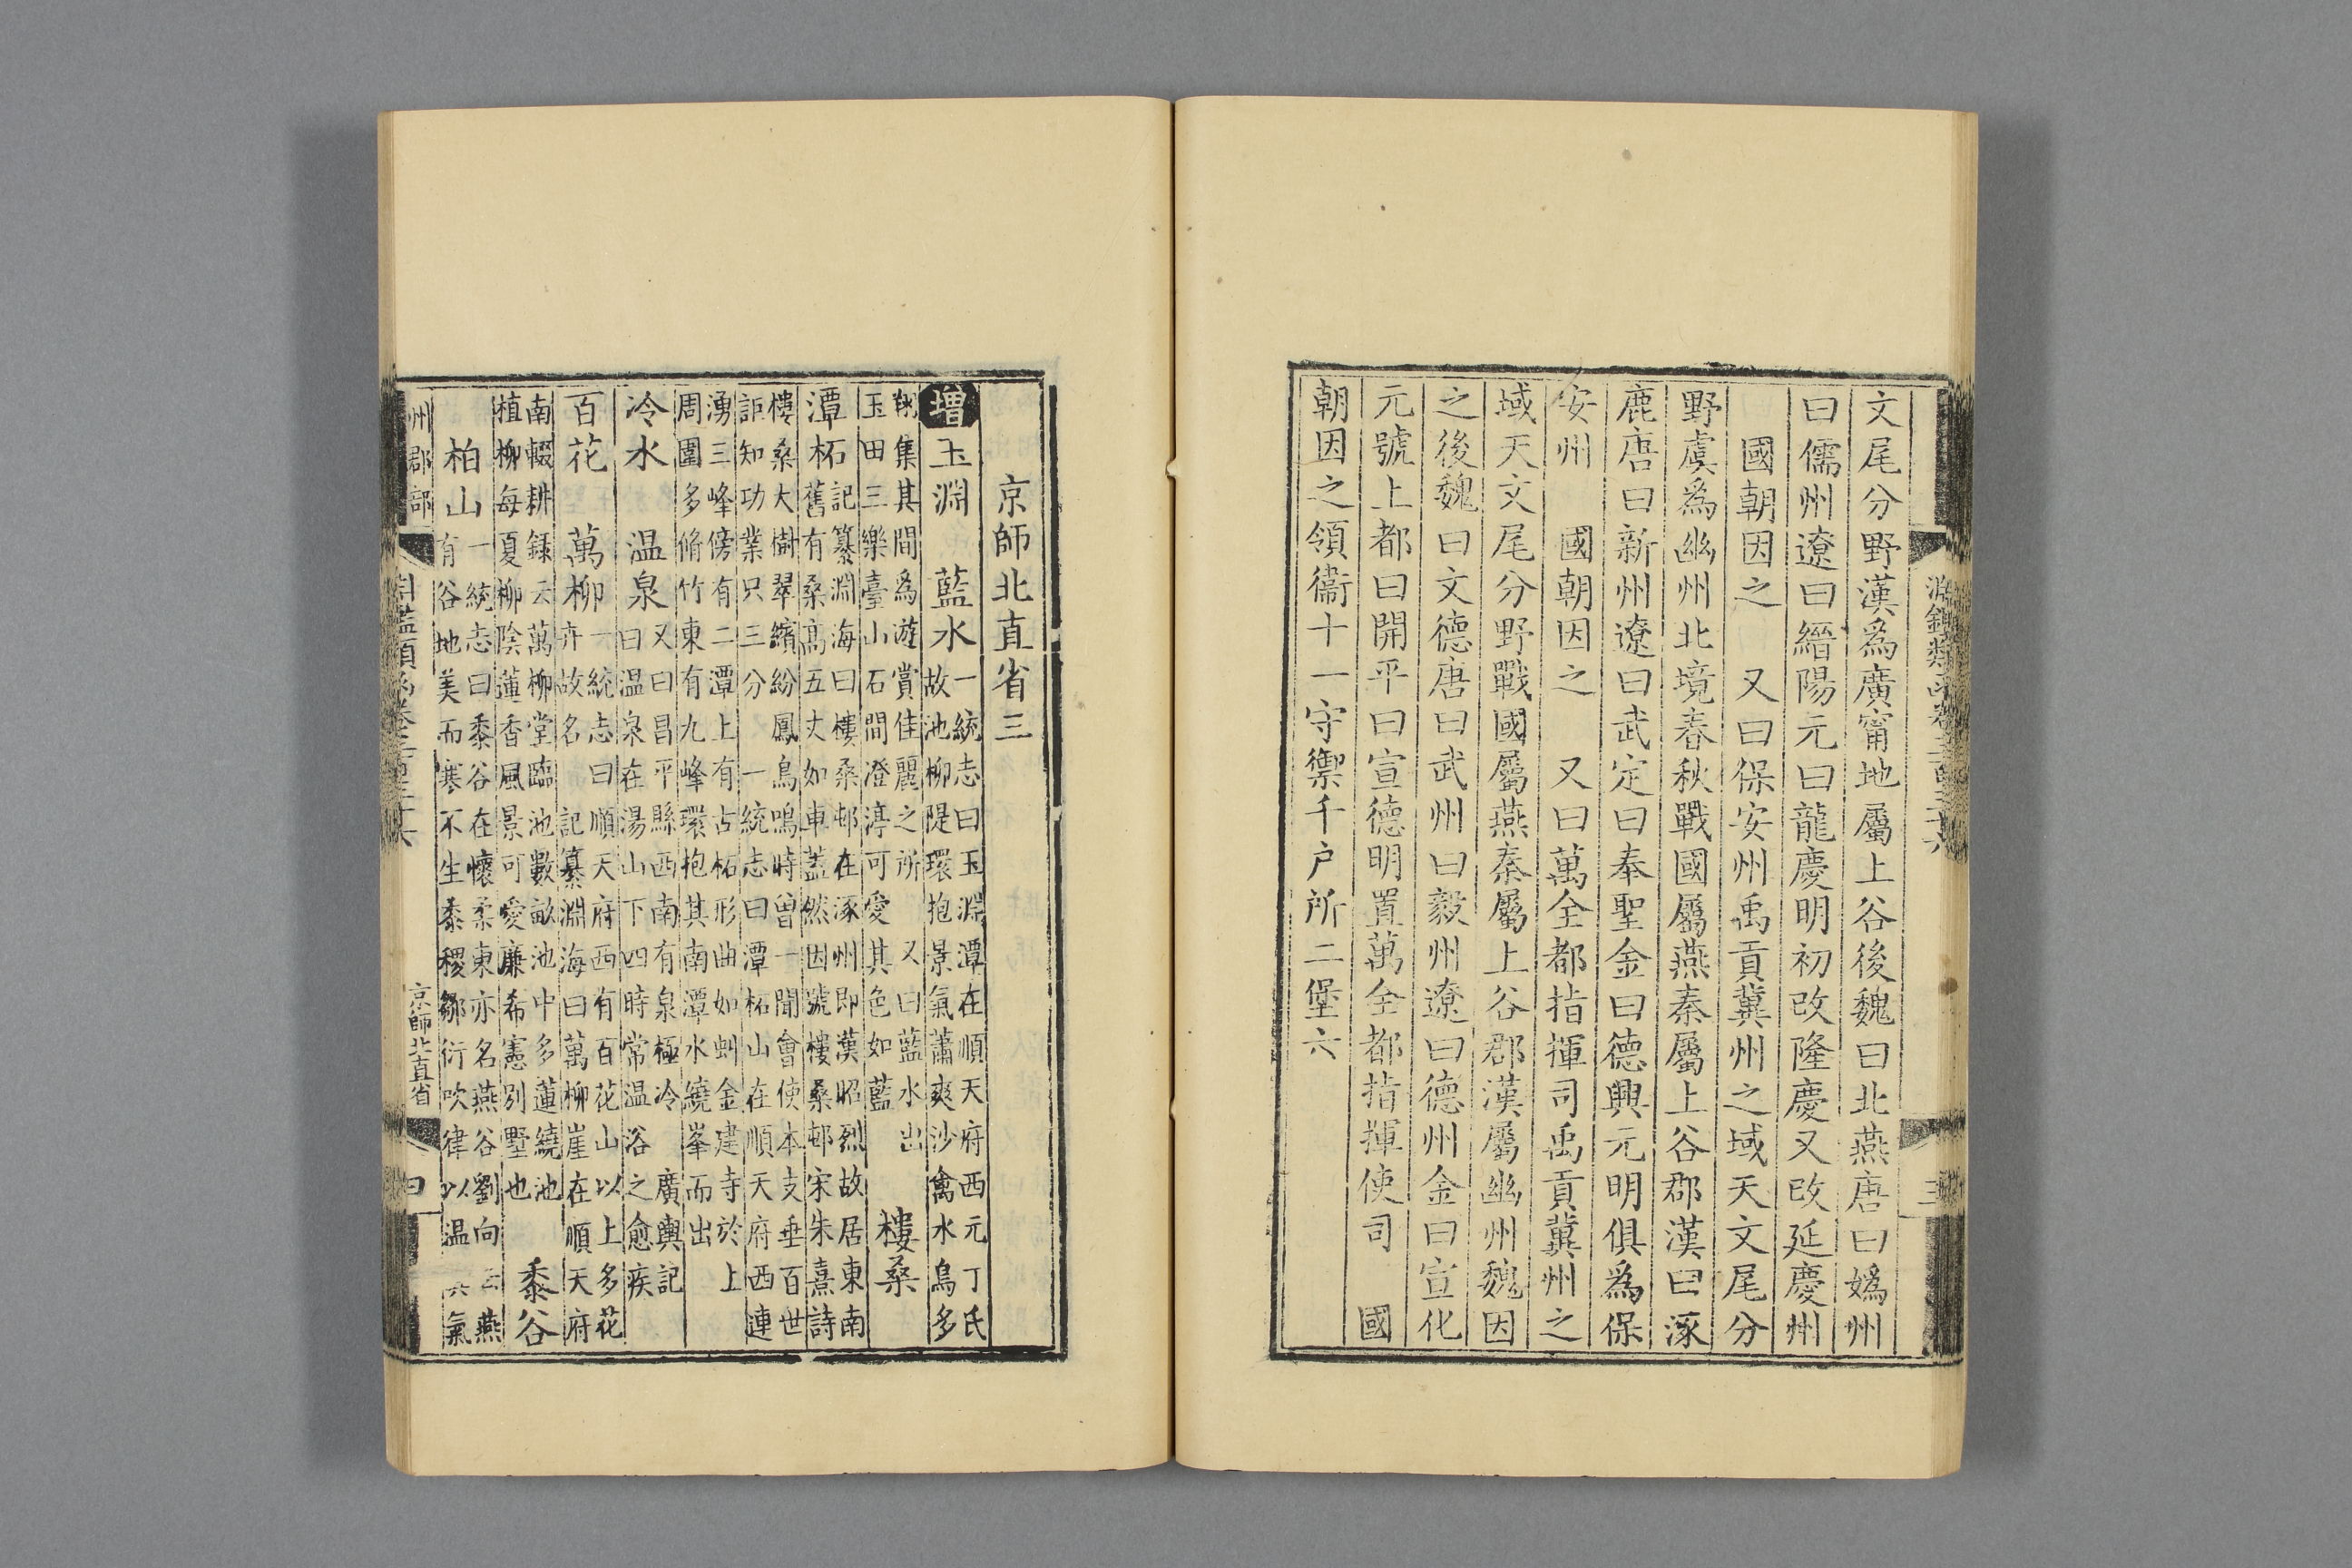 文尾分野漢爲廣甯地屬上谷後魏曰北燕唐曰嬀州
曰儒州遼曰縉陽元曰龍慶明初改隆慶又改延慶州
國朝因之　又曰保安州禹貢冀州之域天文尾分
野虞爲幽州北境春秋戰國屬燕秦屬上谷郡漢曰涿
鹿唐曰新州遼曰武定曰奉聖金曰德興元明俱爲保
安州　國朝因之　又曰萬全都指揮司禹貢冀州之
域天文尾分野戰國屬燕秦屬上谷郡漢屬幽州魏因
之後魏曰文德唐曰武州曰毅州遼曰德州金曰宣化
元號上都曰開平曰宣德明置萬全都指揮使司　國
朝因之領衞十一守禦千户所二堡六
京師北直省三
增玉淵　藍水一統志曰玉淵潭在順天府西元丁氏
故池柳隄環抱景氣蕭爽沙禽水鳥多
翔集其間爲遊賞佳麗之所　又曰藍水出
玉田三樂臺山石間澄渟可愛其色如藍　樓桑
潭柘記纂淵海曰樓桑邨在涿州即漢昭烈故居東南
舊有桑高五丈如車蓋然因號樓桑邨宋朱熹詩
樓桑大樹翠繽紛鳳鳥鳴時曾一聞會使本支垂百世
詎知功業只三分　一統志曰潭柘山在順天府西連
湧三峰傍有二潭上有古柘形曲如虯金建寺於上
周圍多脩竹東有九峰環抱其南潭水繞峯而出
冷水　温泉又曰昌平縣西南有泉極冷　廣輿記
曰温泉在湯山下四時常温浴之愈疾
百花　萬柳一統志曰順天府西有百花山以上多花
卉故名　記纂淵海曰萬柳崖在順天府
南輟耕録云萬柳堂臨池數畝池中多蓮繞池
植柳每夏柳陰蓮香風景可愛廉希憲别墅也　黍谷
柏山一統志曰黍谷在懷柔東亦名燕谷劉向云燕
有谷地美而寒不生黍稷鄒衍吹律以温其氣
州郡部
京師北直省